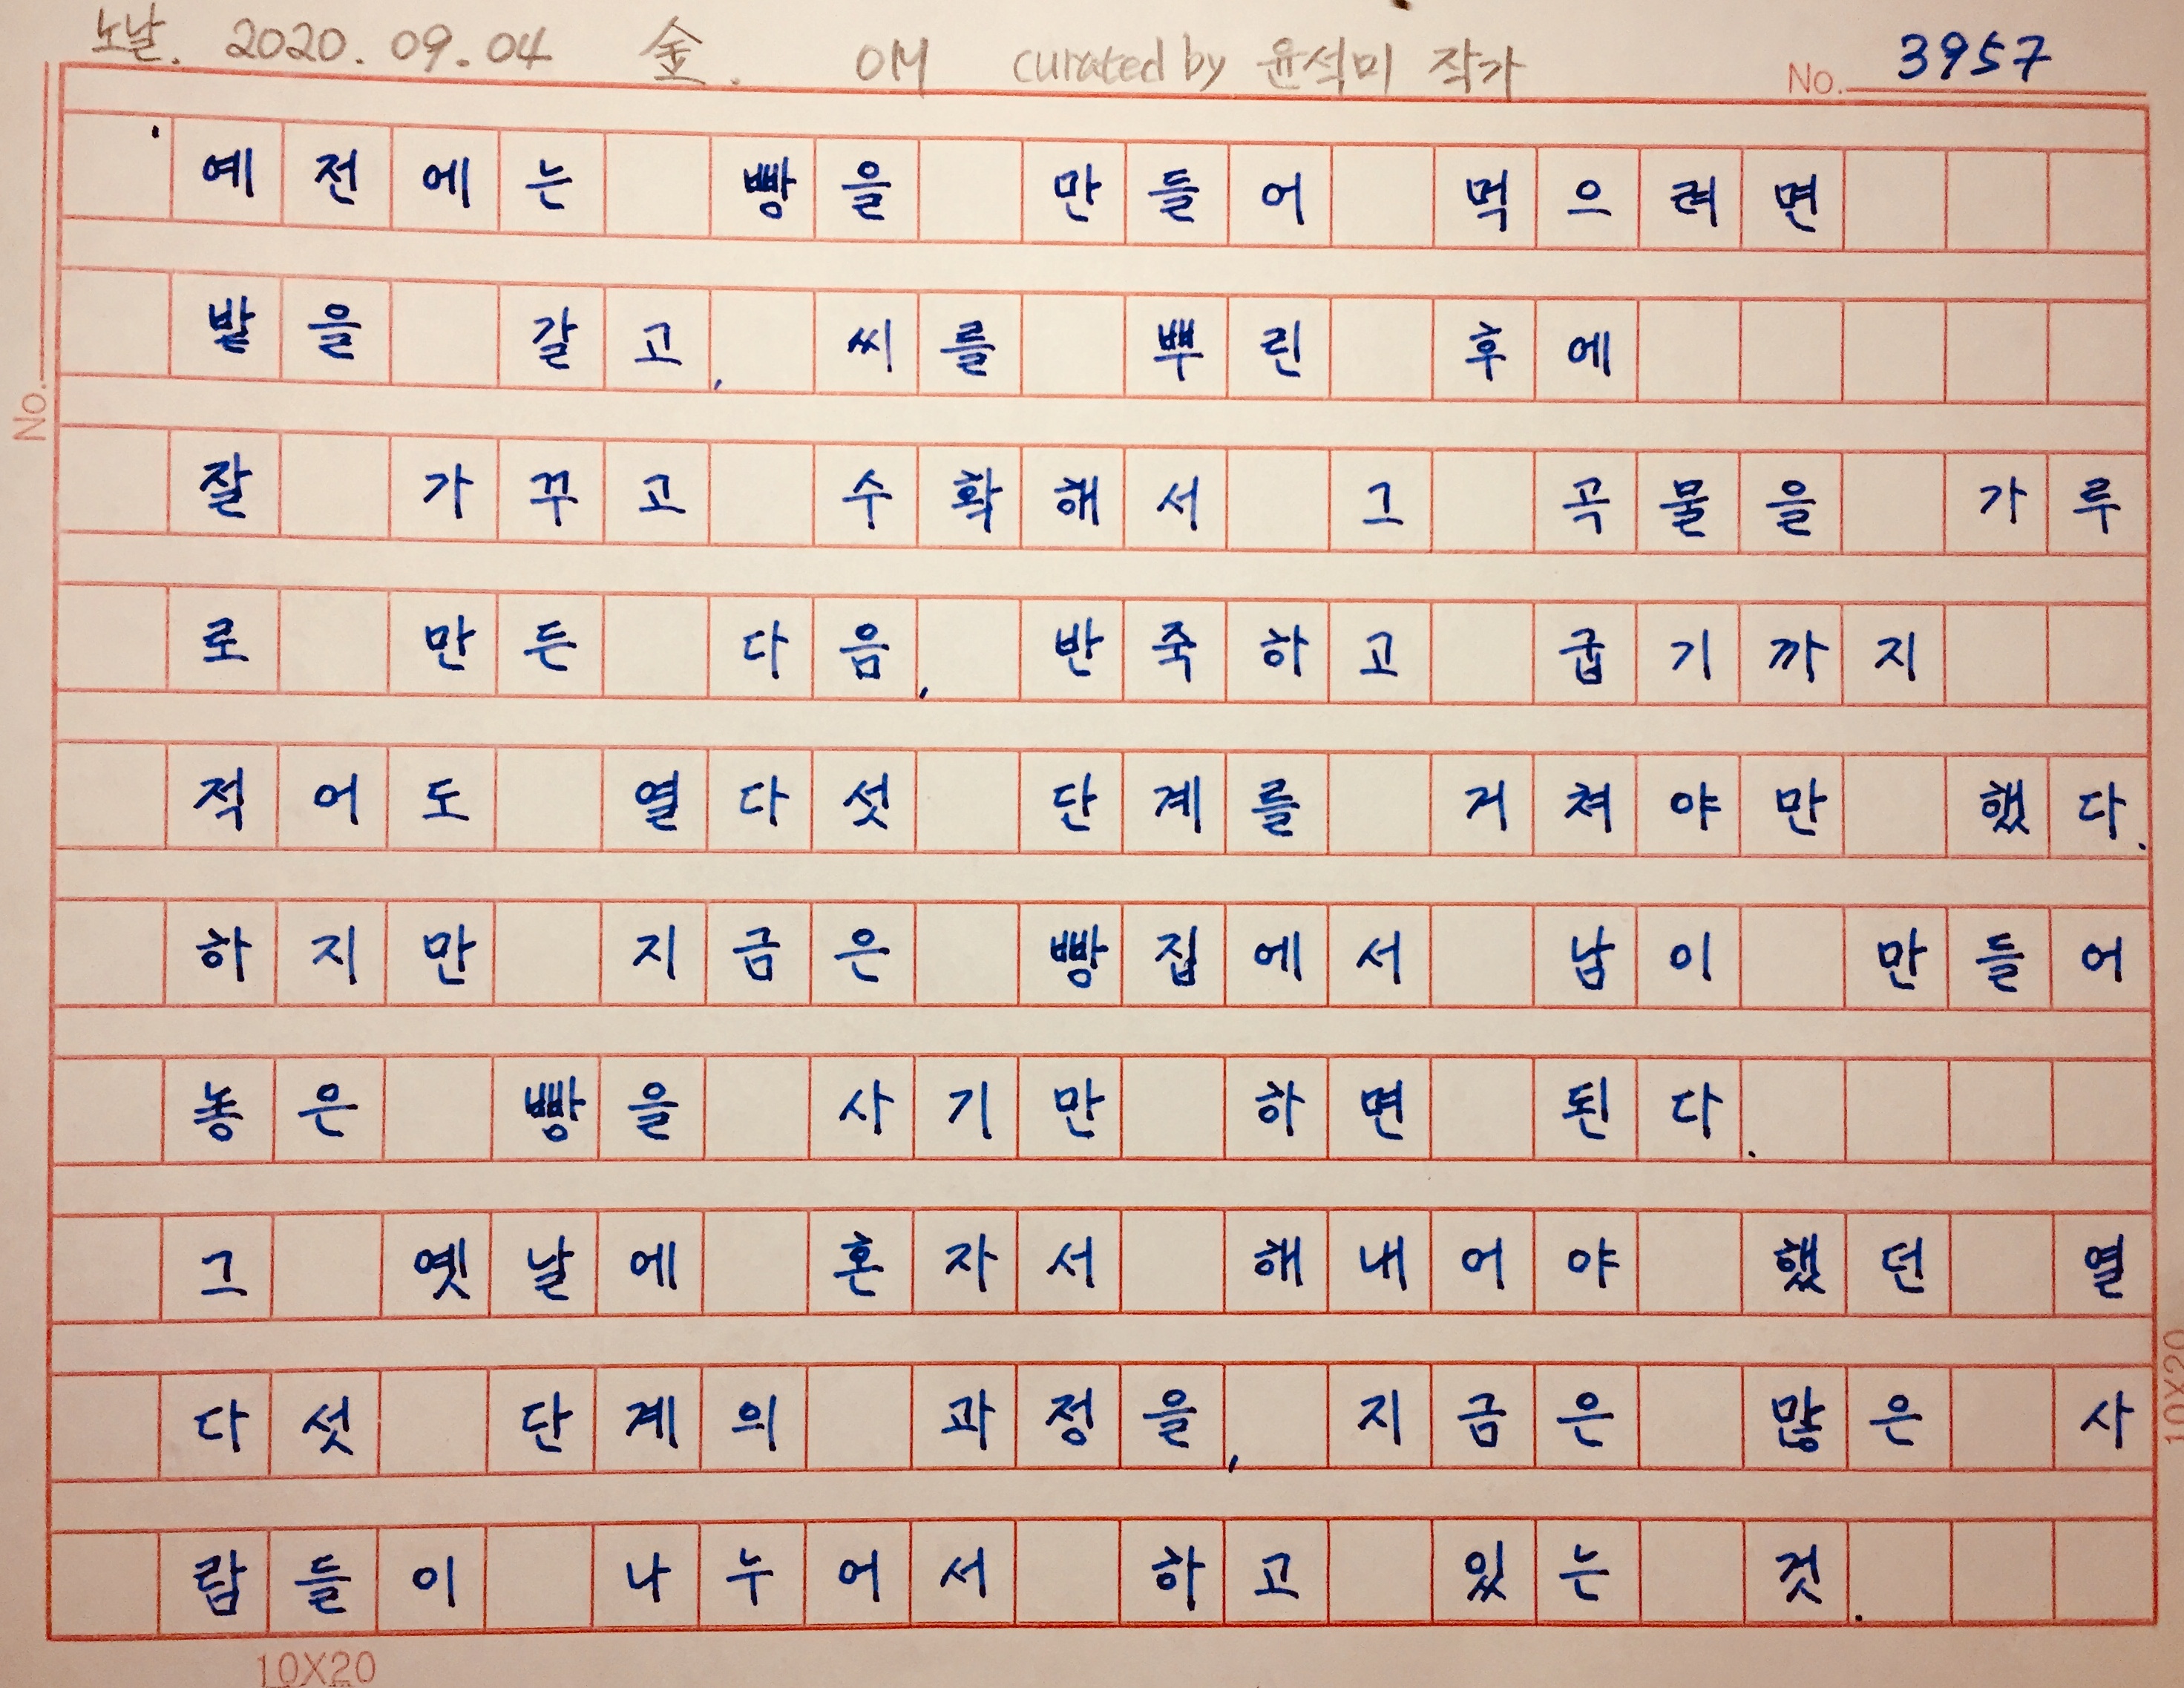 노날. 2020. 09. 04 金. OM curated by 윤석미 작가 No. 3957
예전에는 빵을 만들어 먹으려면
밭을 갈고, 씨를 뿌린 후에
잘 가꾸고 수확해서 그 곡물을 가루
로 만든 다음, 반죽하고 굽기까지
적어도 열다섯 단계를 거쳐야만 했다.
하지만 지금은 빵집에서 남이 만들어
놓은 빵을 사기만 하면 된다.
그 옛날에 혼자서 해내어야 했던 열
다섯 단계의 과정을, 지금은 많은 사
람들이 나누어서 하고 있는 것.
No.
10X20
10X20